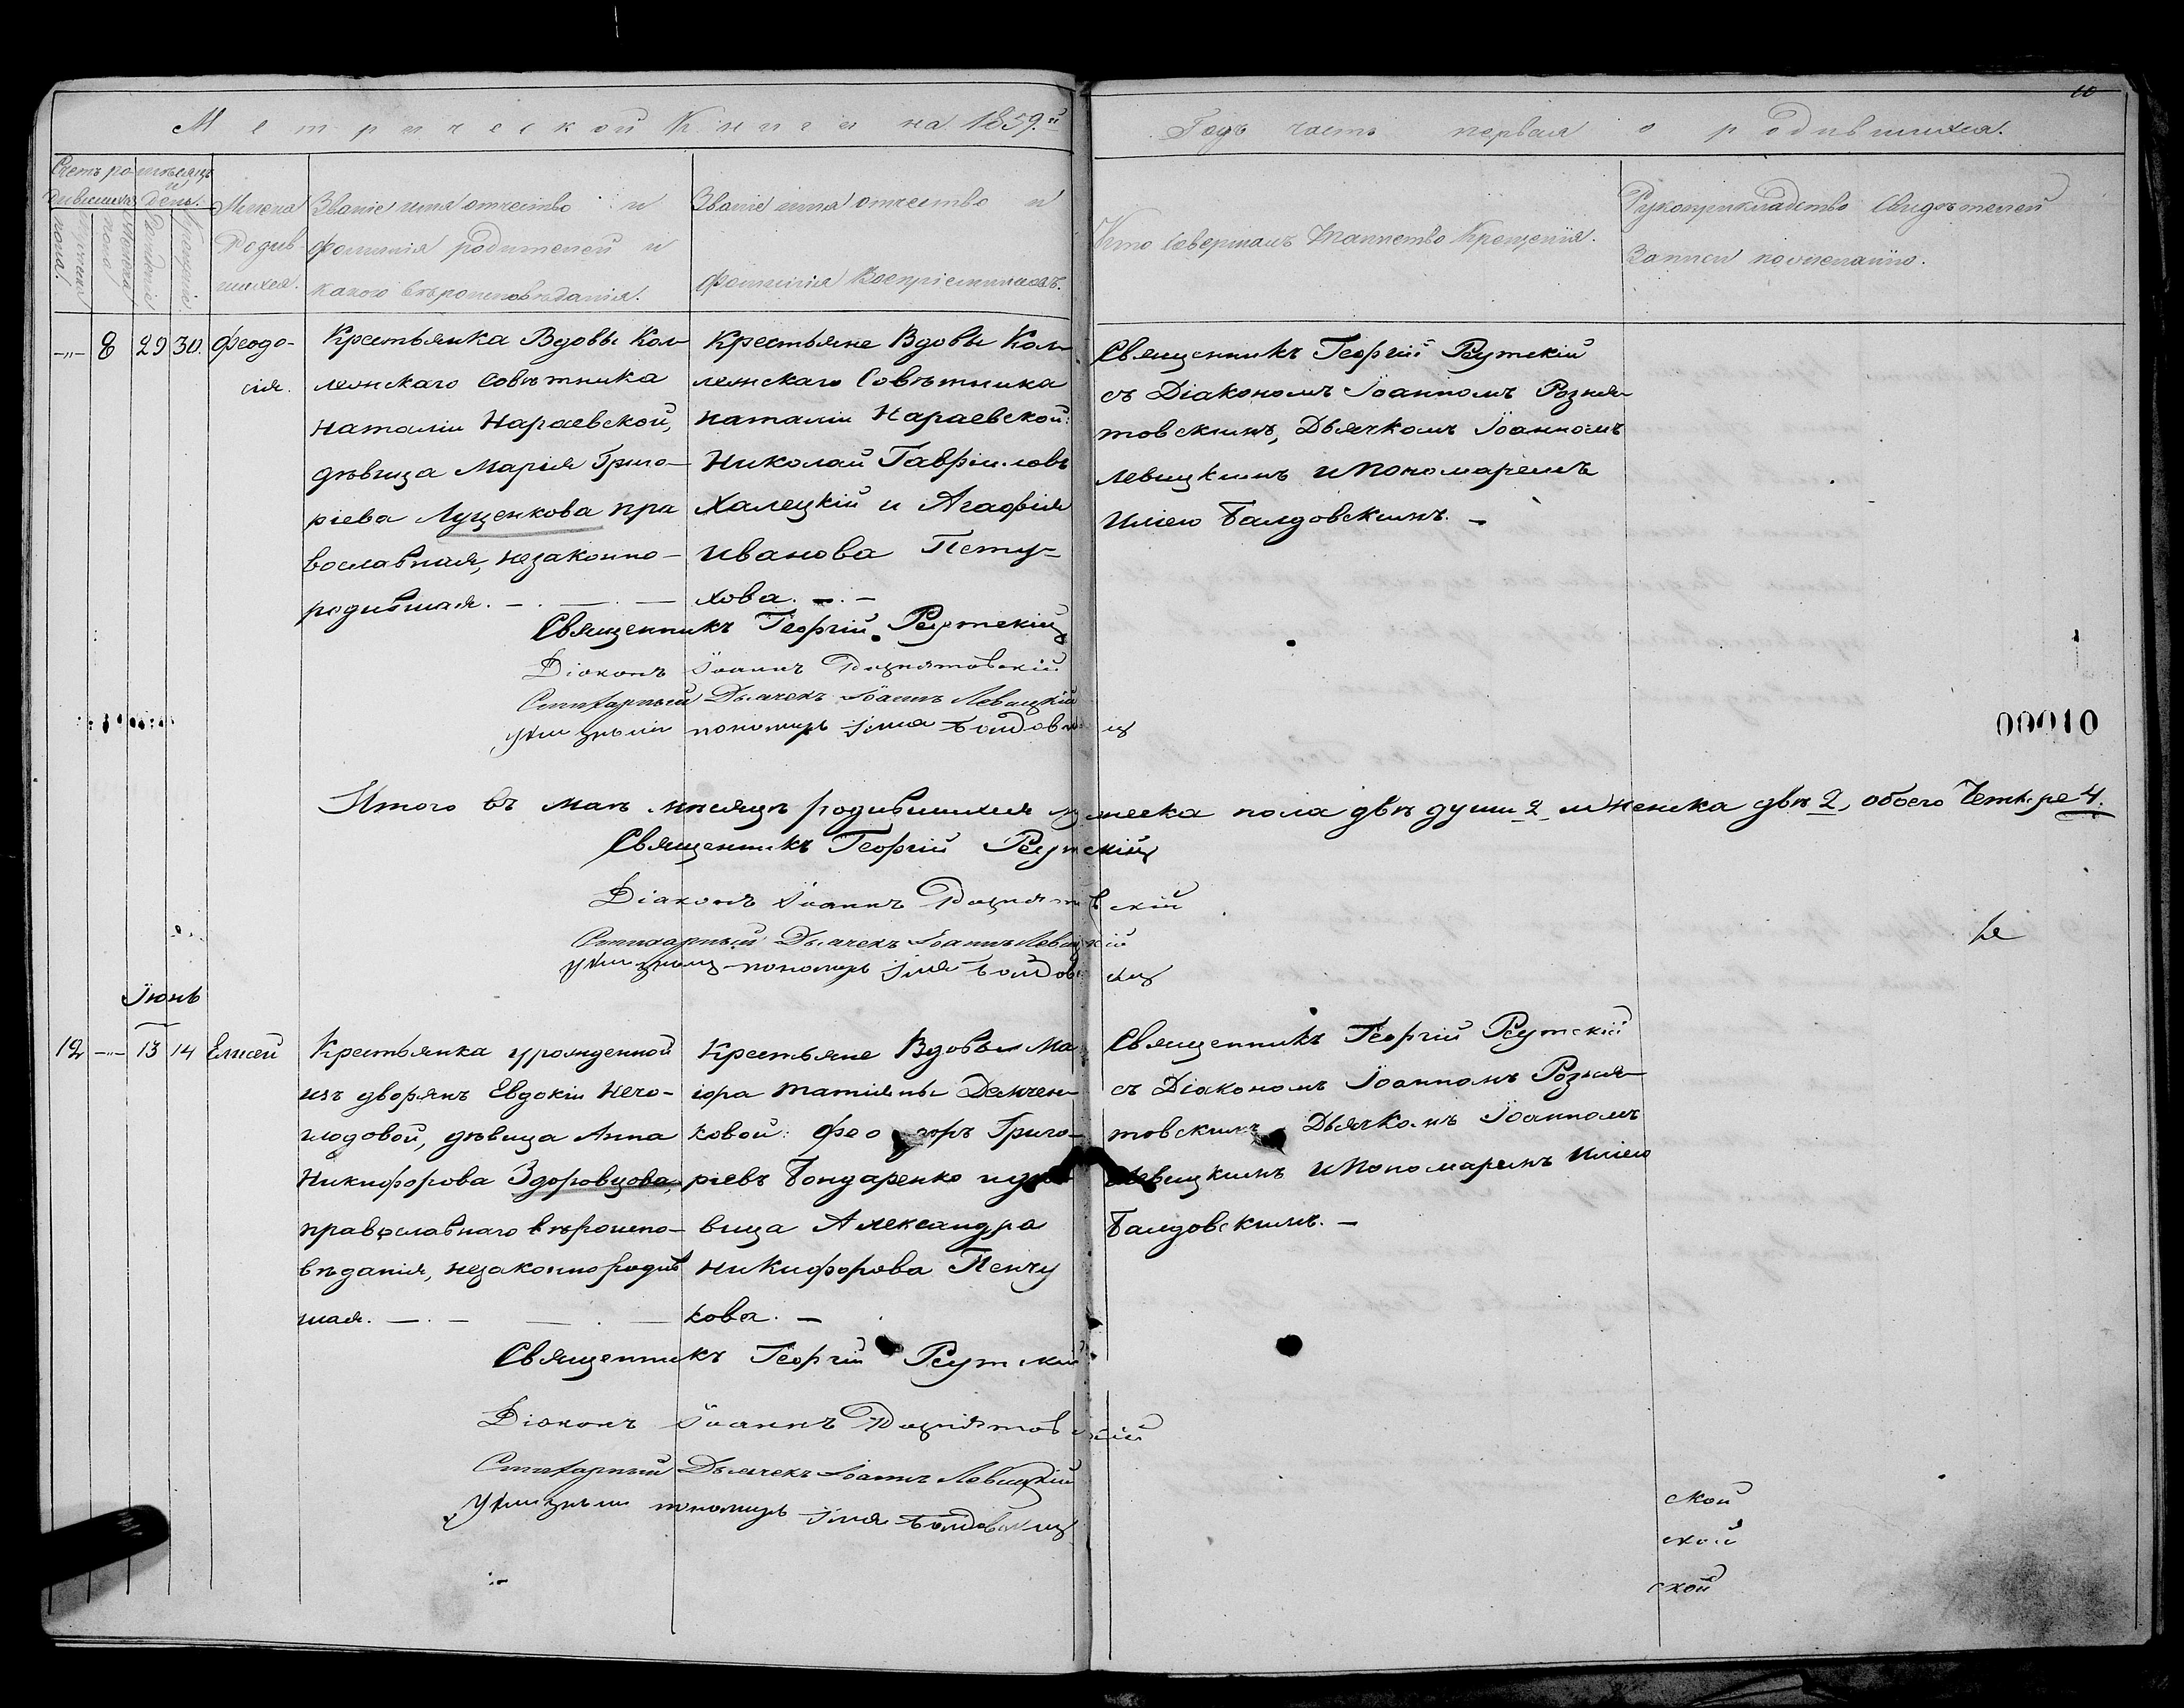 10
Метрической Книги на 1859.й
Годъ часть первая о родившихся.
Счетъ ро дившихся
мѣсяцъ и день.
Мужеска пола.
Женска пола
Рожденія
Крещенія
Имена Родив шихся.
Званіе имя отчество и
фамилія родителей и
какого вѣроисповѣданія.
Званіе имя отчество и
фамилія Воспріемниковъ.
Кто совершалъ Таинство Крещенія.
Рукоприкладство Свидѣтелей
Записи по желанію.
-"- 8 29 30. Феодо-
сія.
Крестьянка Вдовы Кол
лежскаго Совѣтника
Наталіи Нараевской,
дѣвица Марія Григо-
ріева Луценкова пра
вославная, незаконно-
родившая. — . — . —
Крестьяне Вдовы Кол-
лежскаго Совѣтника
Наталіи Нараевской:
Николай Гавріиловъ
Халецкій и Агафія
Иванова Пету-
хова. — . —
Священникъ Георгій Реутскій
съ Діакономъ Іоанномъ Розня-
товскимъ, Дьячкомъ Іоанномъ
Левицкимъ и Пономаремъ
Иліею Балдовскимъ. —
Священникъ Георгій Реутскій
Діаконъ Іоаннъ Рознятовскій
Стихарный Дьячекъ Іоаннъ Левицкій
пономарь Ілія Балдовскій
00010
Итого въ маѣ мѣсяцѣ родившихся мужеска пола двѣ души 2, и женска двѣ 2, обоего Четыре 4.
Священникъ Георгій Реутскій
Діаконъ Іоаннъ Рознятовскій
Стихарный Дьячекъ Іоаннъ Левицкій
пономарь Ілія Балдовскій
Іюнь
12 -"- 13 14 Елисей
Крестьянка урожденной
изъ дворянъ Евдокіи Него-
лодовой, дѣвица Анна
Никифорова Здоровцова,
православнаго вѣроиспо-
вѣданія, незаконнородив
шая. — . — — . —
Крестьяне Вдовы Ма
іора Татіаны Демчен-
ковой: Феодоръ Григо-
ріевъ Бондаренко и дѣ
вица Александра
Никифорова Пенчу
кова. —
Священникъ Георгій Реутскій
съ Діакономъ Іоанномъ Розня-
товскимъ Дьячкомъ Іоанномъ
Левицкимъ и Пономаремъ Иліею
Балдовскимъ. —
Священникъ Георгій Реутскій
Діаконъ Іоаннъ Рознятовскій
Стихарный Дьячекъ Іоаннъ Левицкій
пономарь Ілія Балдовскій
ской
ской
ской